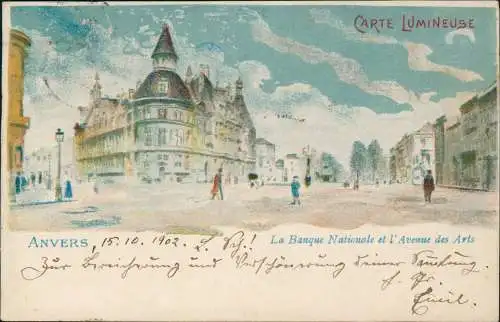 CARTE LUMINEUSE
ANVERS, 15.10.1902. L. Sch.!
La Banque Nationale et l'Avenue des Arts
Zur Bereicherung und Verschönerung Deiner Samlung
Emil.